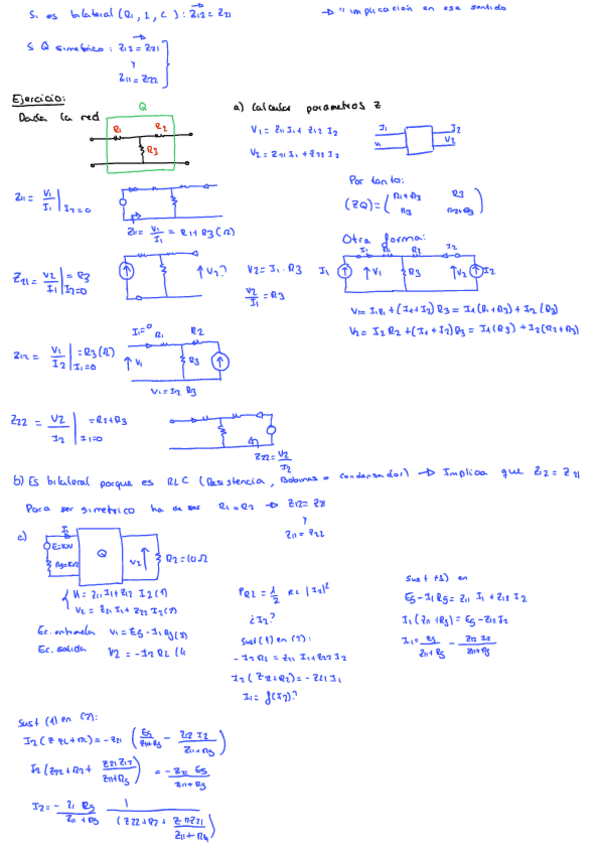 Si es bilateral (R, L, C) : Z12 = Z21 → "implicación en ese sentido
S Q simétrico : Z12 = Z21
y
Z11 = Z22
Ejercicio:
Dada la red
Q
R1 R2
R3
a) Calcular parámetros Z
V1 = Z11 I1 + Z12 I2
V2 = Z21 I1 + Z22 I2
I1 I2
V1 V2
Z11 = V1/I1 | I2=0
Z11 = V1/I1 = R1+R3 (Ω)
Por tanto:
(ZQ) = ( R1+R3 R3
R3 R2+R3 )
Z21 = V2/I1 | I2=0 = R3
V2?
V2 = I1 · R3
V2/I1 = R3
Otra forma:
I1 R1 R2 I2
I1 V1 R3 V2 I2
V1 = I1R1 + (I1+I2) R3 = I1(R1+R3) + I2 (R3)
V2 = I2 R2 + (I1+I2) R3 = I1(R3) + I2(R2+R3)
Z12 = V1/I2 | I1=0 = R3(Ω)
I1=0 R1 R2
V1 R3
V1 = I2 R3
Z22 = V2/I2 | I1=0 = R2+R3
Z22 = V2/I2
b) Es bilateral porque es RLC (Resistencia, Bobinas o condensador) → Implica que Z12 = Z21
Para ser simétrico ha de ser R1 = R2 → Z12 = Z21
y
Z11 = Z22
c)
I1
Q
V2
R2 = 10Ω
V1 = Z11 I1 + Z12 I2 (1)
V2 = Z21 I1 + Z22 I2 (2)
Ec. entrada V1 = Eg - I1 Rg (3)
Ec. salida V2 = -I2 RL (4
PRL = 1/2 RL |I2|²
¿I2?
Sust (4) en (2):
-I2 RL = Z21 I1 + Z22 I2
I2 (Z22 + RL) = -Z21 I1
I1 = f(I2)?
Eg - I1 Rg = Z11 I1 + Z12 I2
I1 (Z11 + Rg) = Eg - Z12 I2
I1 = Eg/(Z11+Rg) - Z12 I2/(Z11+Rg)
Sust (1) en (2):
I2 (Z22 + RL) = -Z21 ( Eg/(Z11+Rg) - Z12 I2/(Z11+Rg) )
I2 (Z22 + RL + Z21 Z12/(Z11+Rg)) = -Z21 Eg/(Z11+Rg)